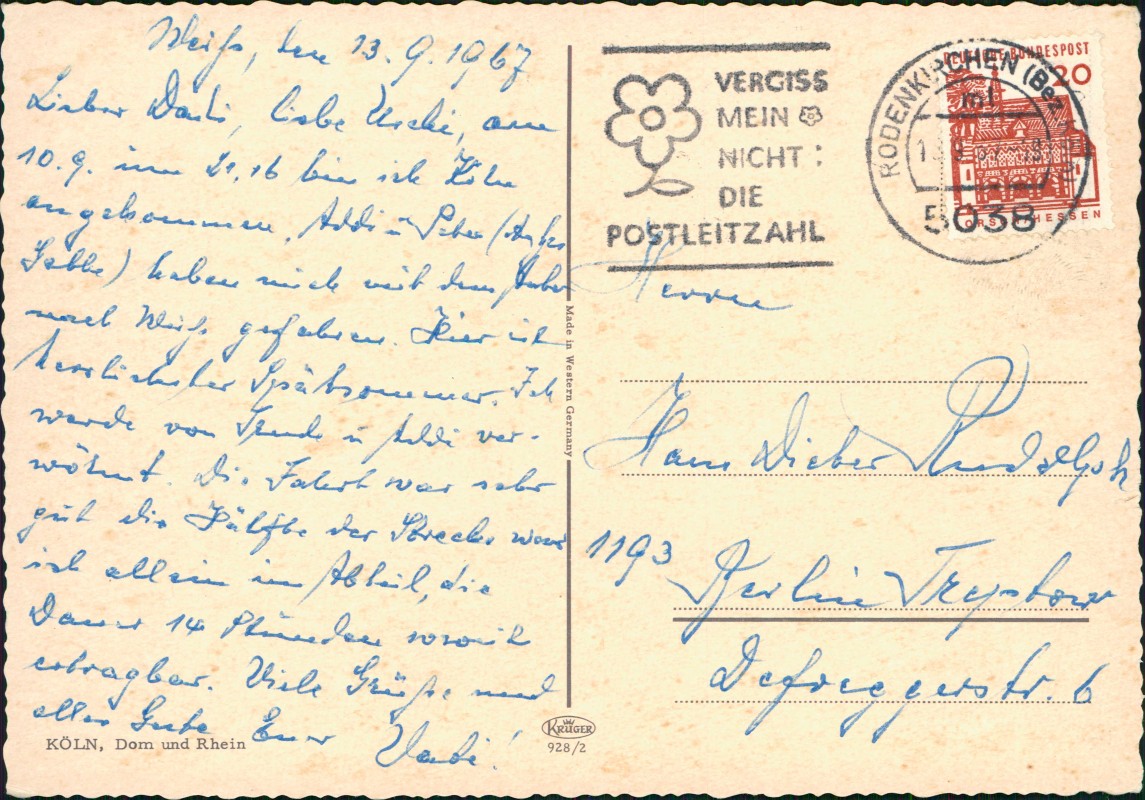 Weiß, den 13.9.1967
Lieber Dati, liebe Uschi, am
10.9. um 21,16 bin ich Köln
angekommen. Addi u Peter
haben mich mit dem Auto
nach Weiß gefahren. Hier ist
herrlichster Spätsommer. Ich
werde von Trude u Addi ver-
wöhnt. Die Fahrt war sehr
gut die Hälfte der Strecke war
ich allein im Abteil, die
Dauer 14 Stunden soweit
ertragbar. Viele Grüße und
alles Gute Euer
Vati!
KÖLN, Dom und Rhein
Made in Western Germany
KRÜGER
928/2
VERGISS
MEIN
NICHT:
DIE
POSTLEITZAHL
RODENKIRCHEN (Bez.
ml
5038
DEUTSCHE BUNDESPOST
20
LORSCH HESSEN
Herrn
Hans Dieter Rudolph
1193
Berlin Treptow
Defreggerstr. 6